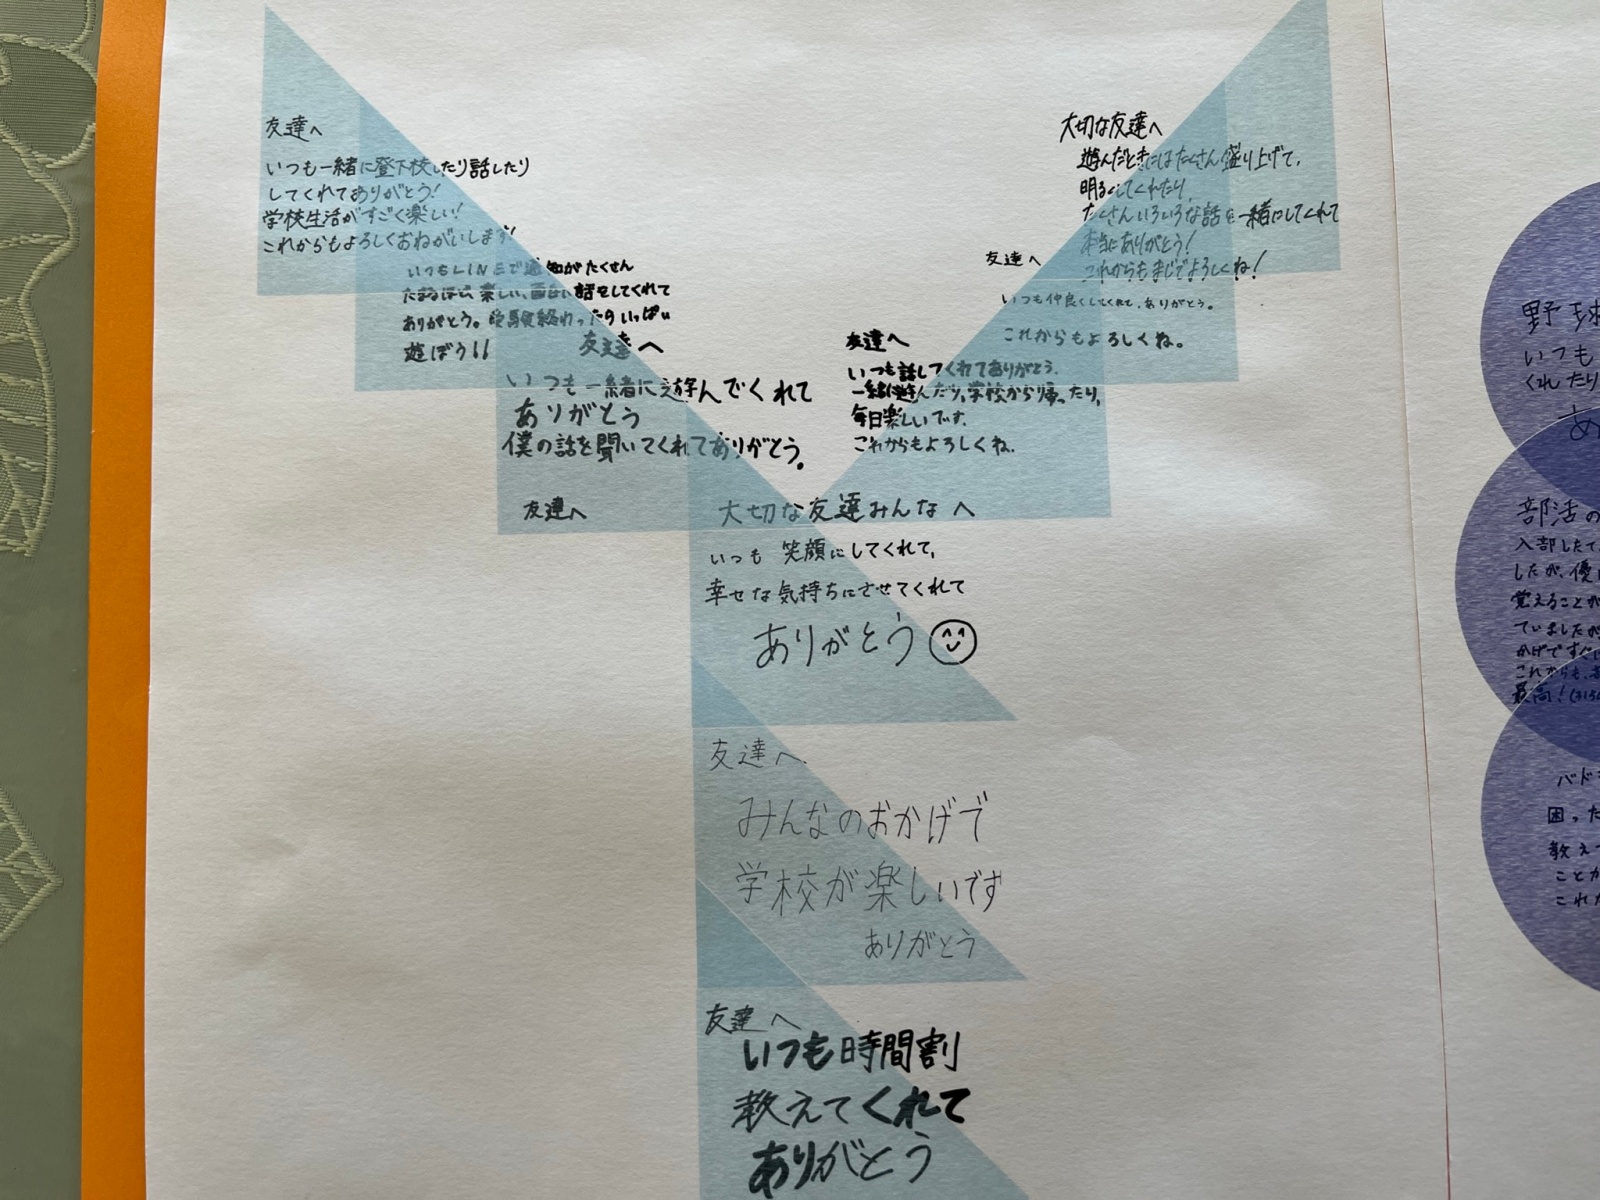 友達へ
いつも一緒に登下校したり話したり
してくれてありがとう!
学校生活がすごく楽しい!
これからもよろしくおねがいします!
いつもLINEで通知がたくさん
たまるほど、楽しい、面白い話をしてくれて
ありがとう。受験終わったらいっぱい
遊ぼう!!
友達へ
いつも一緒に遊んでくれて
ありがとう
僕の話を聞いてくれてありがとう。
友達へ
大切な友達へ
遊んだときにはたくさん盛り上げて、
明るくしてくれたり、
たくさんいろいろな話を一緒にしてくれて
本当にありがとう!
これからもまじでよろしくね!
友達へ
いつも仲良くしてくれて、ありがとう。
これからもよろしくね。
友達へ
いつも話してくれてありがとう。
一緒に遊んだり、学校から帰ったり、
毎日楽しいです。
これからもよろしくね。
大切な友達みんなへ
いつも笑顔にしてくれて、
幸せな気持ちにさせてくれて
ありがとう
友達へ
みんなのおかげで
学校が楽しいです
ありがとう
友達へ
いつも時間割
教えてくれて
ありがとう
野球
いつも
くれたり
あ
部活の
入部した
したが、優
覚えることが
ていましたが
かげですぐに
これからも、
最高!
バド
困った
教え
ことが
これか